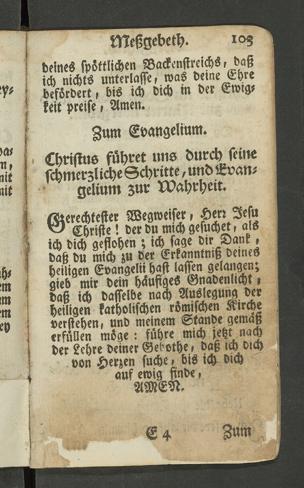 Meßgebeth. 103
deines spöttlichen Backenstreichs, daß
ich nichts unterlasse, was deine Ehre
befördert, bis ich dich in der Ewig-
keit preise, Amen.
Zum Evangelium.
Christus führet uns durch seine
schmerzliche Schritte, und Evan-
gelium zur Wahrheit.
Gerechtester Wegweiser, Herr Jesu
Christe! der du mich gesuchet, als
ich dich geflohen; ich sage dir Dank,
daß du mich zu der Erkanntniß deines
heiligen Evangelii hast lassen gelangen;
gieb mir dein häufiges Gnadenlicht,
daß ich dasselbe nach Auslegung der
heiligen katholischen römischen Kirche
verstehen, und meinem Stande gemäß
erfüllen möge: führe mich jetzt nach
der Lehre deiner Gebothe, daß ich dich
von Herzen suche, bis ich dich
auf ewig finde,
AMEN.
E 4 Zum